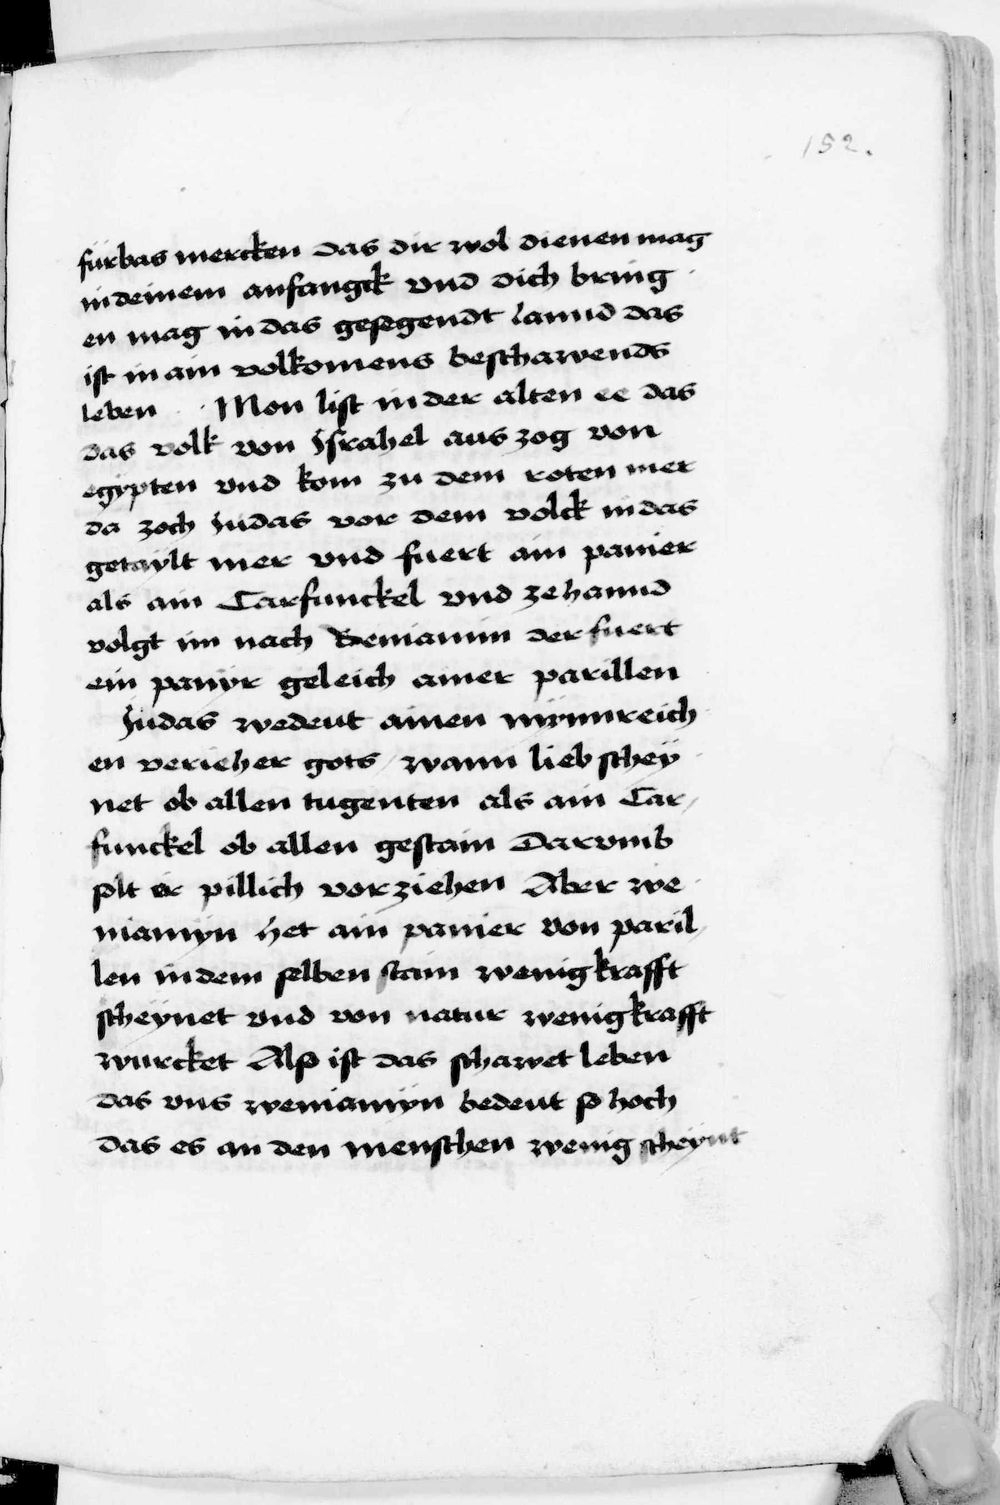 152.
fúrbas mercken das dir wol dienen mag
in deinem anfangck vnd dich bring
en mag in das gesegendt lannd das
ist in ain volkomens beschawends
leben Mon list in der alten ee das
das volk von Jsrahel aus zog von
egypten vnd kom zu dem roten mer
da zoch Judas vor dem volck in das
getaylt mer vnd fuert ain panier
als ain Carfunckel vnd zehannd
volgt im nach Beniamin der fuert
ein panyr geleich ainer parillen
Judas wedeut ainen mynnreich
en verieher gots / wann lieb schey
net ob allen tugenten als ain Car/
funckel ob allen gestain Darvmb
solt er pillich vorziehen Aber we
niamyn het ain panier von paril/
len in dem selben stain wenig krafft
scheynet vnd von natur wenig krafft
wurcket Also ist das schawet leben
das vns weniamyn bedeut so hoch
das es an den menschen wenig scheynt